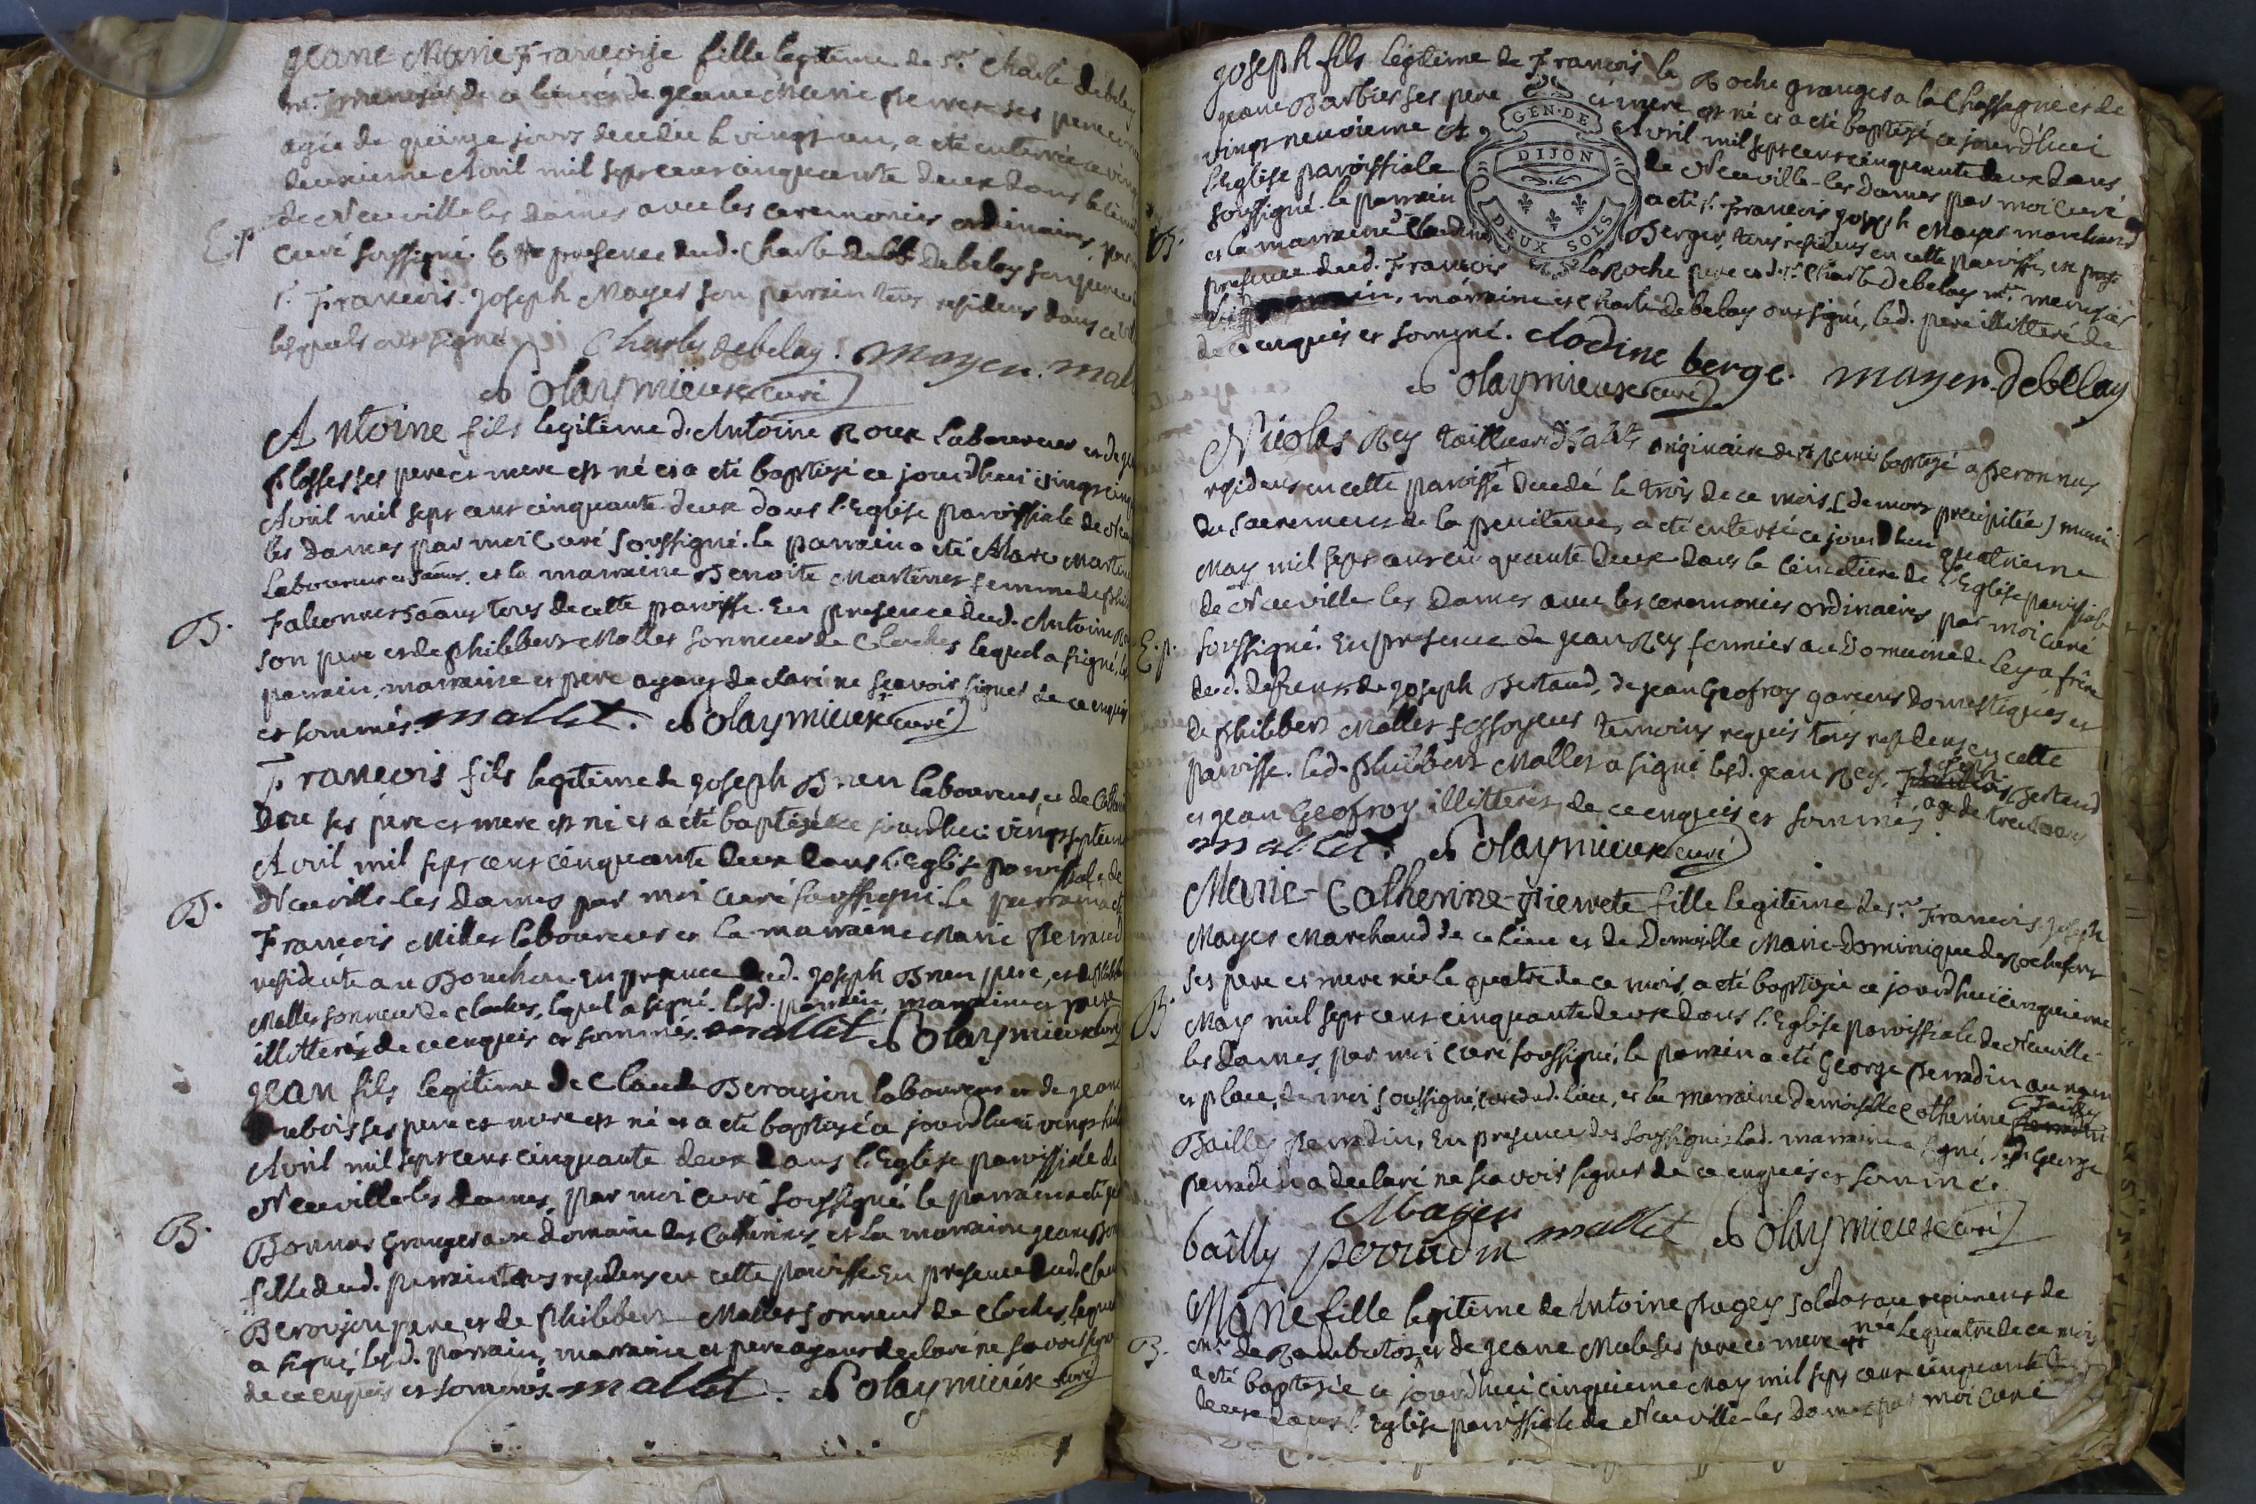 Jeane Marie Françoise fille legitime de Sr. Charle debelay
me menusier de ce lieu et de Jeane Marie ses pere et
agée de quinze jours decedée le vingt un, a eté enterrée ce vingt
deuxieme Avril mil sept cent cinquante deux dans le
de Neuville les Dames avec les ceremonies ordinaires, par
E.p.
Curé soussigné. en presence dud. Charle debelay son pere
Sr. François Joseph Mayer son parrain tous residens dans ce
lesquels ont signé
Charles debelay. Mayer. mal
Polaymieux curé
Antoine fils legitime d'Antoine Roux laboureur et de
Plosse ses pere et mere est né et a eté baptisé ce jourdhuy vingt
Avril mil sept cent cinquante deux dans l'Eglise paroissiale de
les Dames par moi Curé soussigné. le parrain a eté Marc
Laboureur et la marraine Benoite femme de
tous de cette paroisse. En presence dud. Antoine
B.
son pere et de philibert Mallet sonneur de Cloches lequel a signé,
parrain, marraine et pere ayant declaré ne sçavoir signer de ce enquis
et sommés. mallet. Polaymieux curé
François fils legitime de Joseph Bren laboureur, et de
ses pere et mere est né et a eté baptisé ce jourdhui vingt septieme
Avril mil sept cent cinquante deux dans l'Eglise paroissiale de
B.
Neuville-les Dames par moi Curé soussigné. le parrain
François Millet laboureur et la marraine Marie
residente au Bouchou. En presence dud. Joseph Bren pere, et de
Mallet sonneur de cloches, lequel a signé. lesd. parrain, marraine et pere
illitterés de ce enquis et sommés. mallet Polaymieux
Jean fils legitime de Claude Beroujon laboureur et de Jeane
ses pere et mere est né et a eté baptisé ce jourdhui vingt
Avril mil sept cent cinquante deux dans l'Eglise paroissiale de
Neuville les Dames, par moi Curé soussigné. le parrain
B.
Bonnet Granger au Domaine des Catherines, et la marraine Jeane
fille dud. parrain tous residens en cette paroisse En presence dud.
Beroujon pere et de Philibert Mallet sonneur de Cloches,
a signé, lesd. parrain, marraine et pere ayant declaré ne savoir
de ce enquis et sommés. mallet. Polaymieux curé
Joseph fils legitime de François la Roche granger a la Chassagne et de
Jeane Barbier ses pere et mere est né et a eté baptisé ce jourd'huci
vingt neuvieme Avril mil sept cent cinquante deux dans
l'Eglise paroissiale de Neuville-les Dames par moi Curé
soussigné. le parrain a eté Sr. François Joseph Mayer marchand
B.
et la marraine Claudine Berger, tous residens en cette paroisse, en
presence dud. François la Roche pere et de Sr. Charle debelay me. menusier
marraine et Charle debelay ont signé, led. pere illitteré de
de ce enquis et sommé. Clodine berge. mayer. debelay
Polaymieux curé
GEN. DE
DIJON
DEUX SOLS
Nicolas Rey tailleur d'habits originaire de baptisé a Peronnas
residens en cette paroisse decedé le trois de ce mois (de mort precipitée) muni
du sacrement de la penitence, a eté enterré ce jourdhui quatrieme
May mil sept cent cinquante deux dans le cimetiere de l'Eglise
de Neuville les Dames avec les ceremonies ordinaires par moi Curé
E.p.
soussigné. En presence de Jean Rey fermier au Domaine de frère
dud. defunt, de Joseph Bertaud, de Jean Geofroy garçons domestiques et
de philibert Mallet fossoyeur temoins requis tous residens en cette
paroisse. led. philibert Mallet a signé lesd. Jean Rey, Joseph Bertaud
et Jean Geofroy illitterés, de ce enquis et sommés. agé de trente ans
mallet. Polaymieux curé
Marie-Catherine-Pierrete fille legitime de Sr. François-Joseph
Mayer Marchand de ce lieu et de Demoiselle Marie-Dominique de Rochefort
ses pere et mere née le quatre de ce mois, a eté baptisée ce jourdhui cinquieme
B.
May mil sept cent cinquante deux dans l'Eglise paroissiale de Neuville
les Dames, par moi Curé soussigné, le parrain a eté George perradin au nom
et place, de moi soussigné, Curé dud. lieu, et la marraine demoiselle Catherine
Bailly En presence des soussignés lad. marraine a signé, led. George
perradin a declaré ne sçavoir signer de ce enquis et sommé.
Mayer
bailly mallet Polaymieux curé
Marie fille legitime de Antoine Pagey soldat au regiment de
Mr. de et de Jeane ses pere et mere née le quatre de ce mois
B.
a eté baptisée ce jourdhuci cinquieme May mil sept cent cinquante
deux dans l'Eglise paroissiale de Neuville-les Dames par moi Curé